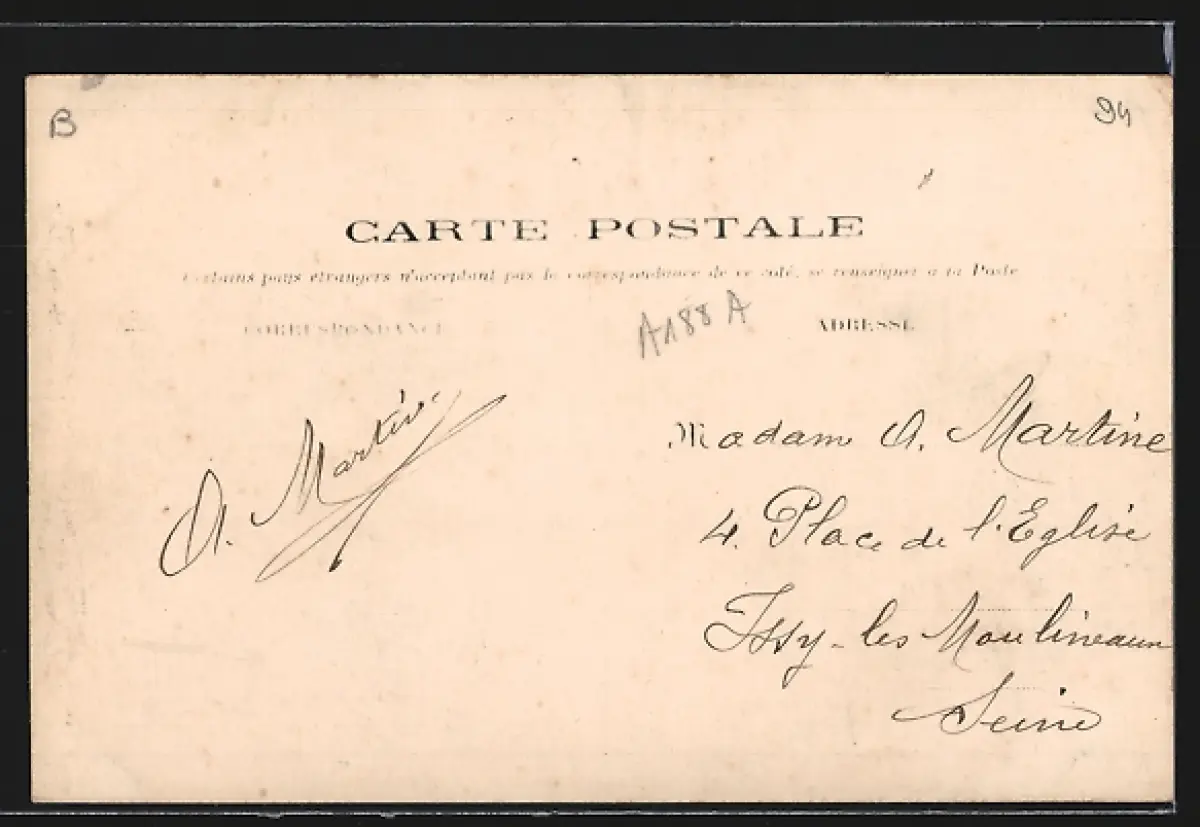 B
94
CARTE POSTALE
Certains pays étrangers n'acceptant pas la correspondance de ce côté, se renseigner à la Poste
CORRESPONDANCE
A188 A
ADRESSE
A. Martine
Madam A. Martine
4. Place de l'Eglise
Issy-les Moulineaux
Seine